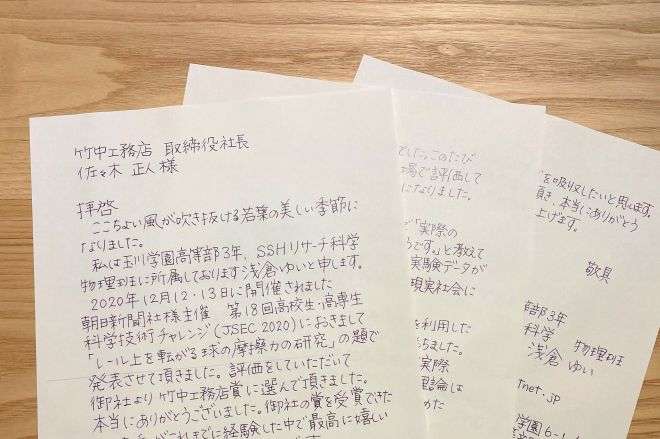 竹中工務店 取締役社長
佐々木 正人 様
拝啓
ここちよい風が吹き抜ける若葉の美しい季節に
なりました。
私は玉川学園高等部3年、SSHリサーチ科学
物理班に所属しております浅倉ゆいと申します。
2020年12月12・13日に開催されました
朝日新聞社様主催 第18回高校生・高専生
科学技術チャレンジ(JSEC2020)におきまして
「レール上を転がる球の摩擦力の研究」の題で
発表させて頂きました。評価をしていただいて
御社より竹中工務店賞に選んで頂きました。
本当にありがとうございました。御社の賞を受賞できた
これまでに経験した中で最高に嬉しい
でした。このたび
場で評価して
になりました。
「実際の
うです。」と教えて
実験データが
現実社会に
を利用した
ちました。
実際
理論は
を吸収したいと思います。
頂き、本当にありがとう
上げます。
敬具
部3年
科学 物理班
浅倉 ゆい
tnet.jp
学園6-1